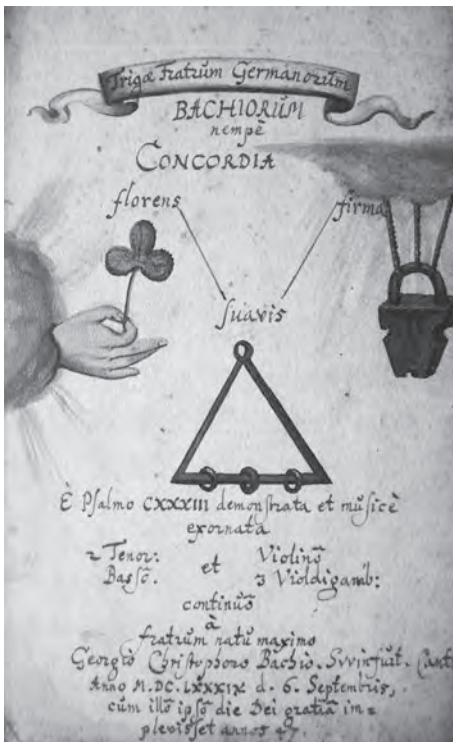 Trigæ Fratrum Germanorum
BACHIORUM
nempè
CONCORDIA
florens
firma
suavis
È Psalmo CXXXIII demonstrata et musicè
exornata
2 Tenor: et Violinō
Bassō. 3 Violdigamb:
continuō
à
fratrum natu maximo
Georgio Christophoro Bachio. Svvinfuit. Cant
Anno M.DC.LXXXIX d. 6. Septembris,
cum illō ipsō die Dei gratiâ im=
plevisset annos 47.